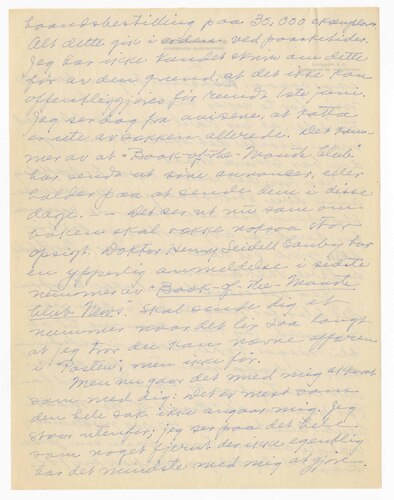 haandsbestilling paa 30,000 eksemplarer.
Alt dette gik i orden ved paasketider.
Jeg har ikke kundet skrive om dette
før av den grund, at det ikke kan
offentliggjøres før rundt 1ste juni.
Jeg ser dog fra aviserne, at katta
er ute av sækken allerede. Det kom-
mer av at "Book-of-the-Month Club"
har sendt ut sine annonser, eller
holder paa at sende dem i disse
dage. — Det ser ut nu som om
boken skal vække noksaa stor
opsigt. Doktor Henry Seidell Canby har
en ypperlig anmeldelse i sidste
nummer av "Book-of-the-Month
Club News". Skal sende dig et
nummer naar det lir saa langt
at jeg tror du kan nævne affæren
i "Posten", men ikke før.
Men nu gaar det med mig akkurat
som med dig: Det er mest som
den hele sak ikke angaar mig. Jeg
staar utenfor; jeg ser paa det hele
som noget fjernt der ikke egentlig
har det mindste med mig at gjøre.